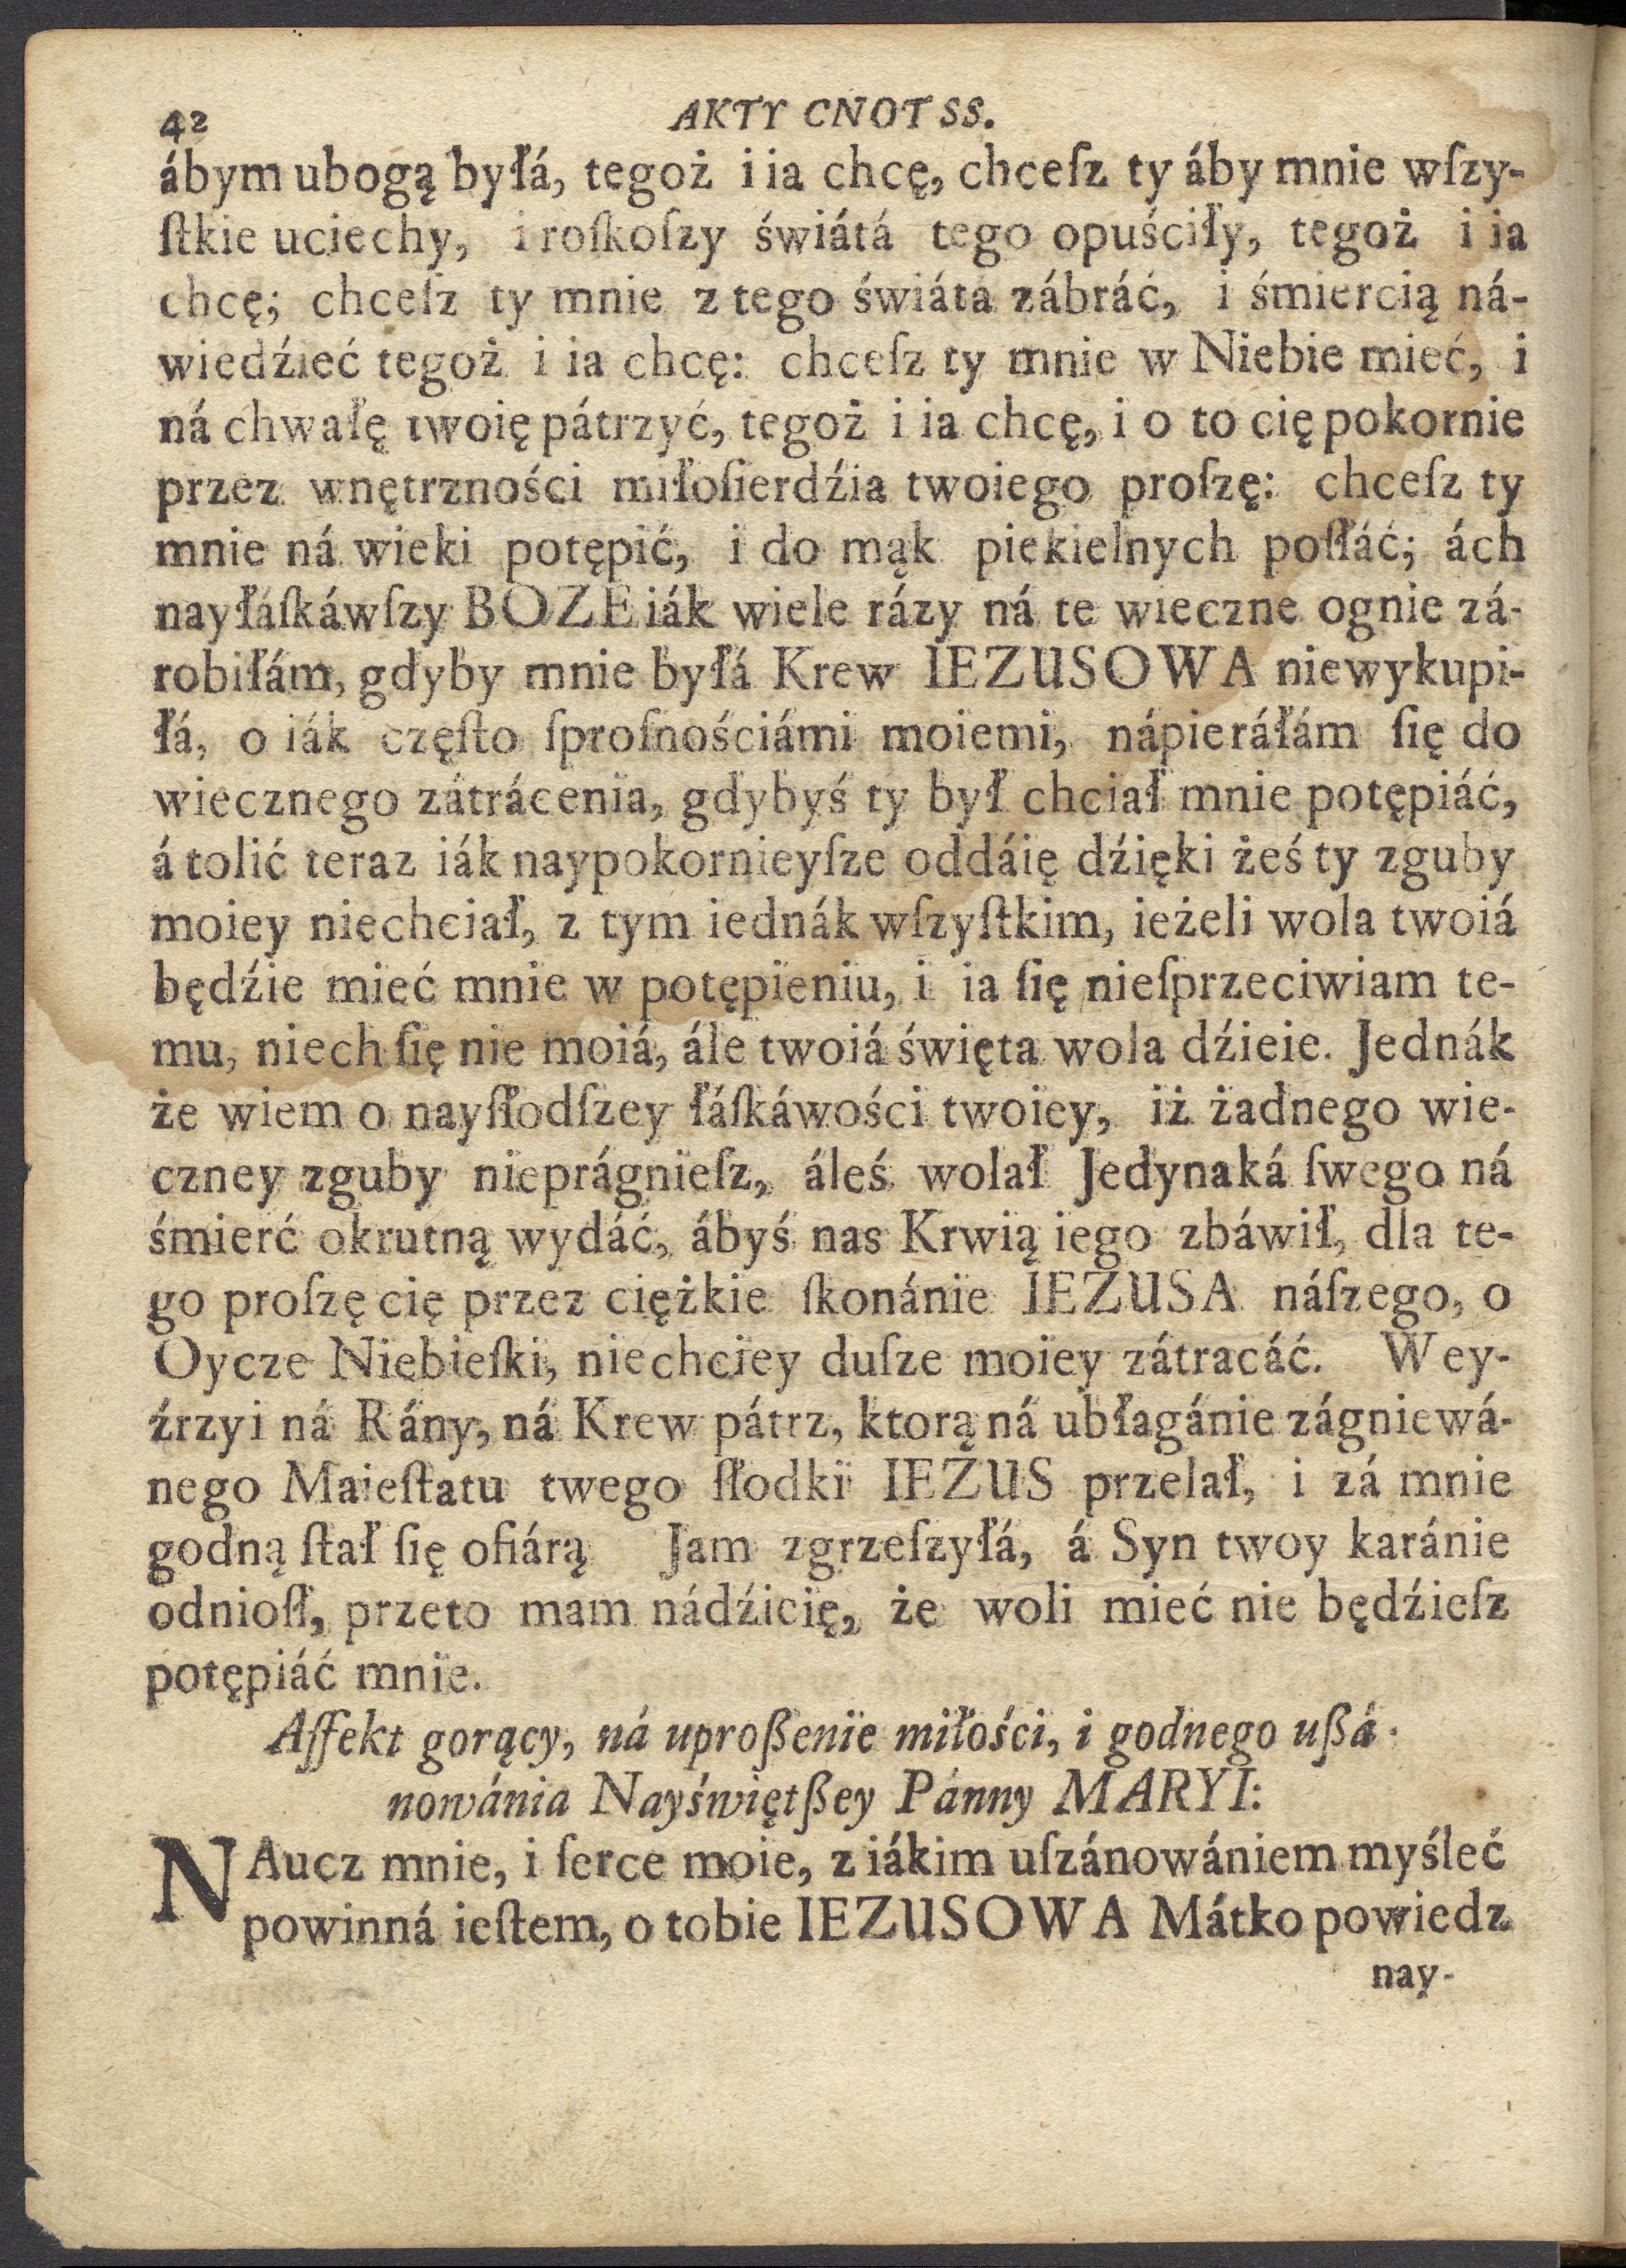 42 AKTY CNOT SS.
ábym ubogą byłá, tegoż i ia chcę, chceſz ty áby mnie wſzy-
ſtkie uciechy, i roſkoſzy świátá tego opuściły, tegoż i ia
chcę; chceſz ty mnie z tego świáta zábráć, i śmiercią ná-
wiedźieć tegoż i ia chcę: chceſz ty mnie w Niebie mieć, i
ná chwałę twoię pátrzyć, tegoż i ia chcę, i o to cię pokornie
przez wnętrzności miłoſierdźia twoiego proſzę: chceſz ty
mnie ná wieki potępić, i do mąk piekielnych poſłáć; ách
nayłáſkáwſzy BOZE iák wiele rázy ná te wieczne ognie zá-
robiłám, gdyby mnie byłá Krew IEZUSOWA niewykupi-
łá, o iák częſto ſproſnościámi moiemi, nápieráłám ſię do
wiecznego zátrácenia, gdybyś ty był chciał mnie potępiáć,
á tolić teraz iák naypokornieyſze oddáię dźięki żeś ty zguby
moiey niechciał, z tym iednák wſzyſtkim, ieżeli wola twoiá
będźie mieć mnie w potępieniu, i ia ſię nieſprzeciwiam te-
mu, niech ſię nie moiá, ále twoiá święta wola dźieie. Jednák
że wiem o nayſłodſzey łáſkáwości twoiey, iż żadnego wie-
czney zguby nieprágnieſz, áleś wolał Jedynaká ſwego ná
śmierć okrutną wydáć, ábyś nas Krwią iego zbáwił, dla te-
go proſzę cię przez ciężkie ſkonánie IEZUSA náſzego, o
Oycze Niebieſki, niechciey duſze moiey zátracáć. Wey-
źrzyi ná Rány, ná Krew pátrz, ktorą ná ubłagánie zágniewá-
nego Maieſtatu twego ſłodki IEZUS przelał, i zá mnie
godną ſtał ſię ofiárą Jam zgrzeſzyłá, á Syn twoy karánie
odnioſł, przeto mam nádźicię, że woli mieć nie będźieſz
potępiáć mnie.
Affekt gorący, ná uproßenie miłości, i godnego ußá-
nowánia Nayświętßey Pánny MARYI:
NAucz mnie, i ſerce moie, z iákim uſzánowániem myśleć
powinná ieſtem, o tobie IEZUSOWA Mátko powiedz
nay-